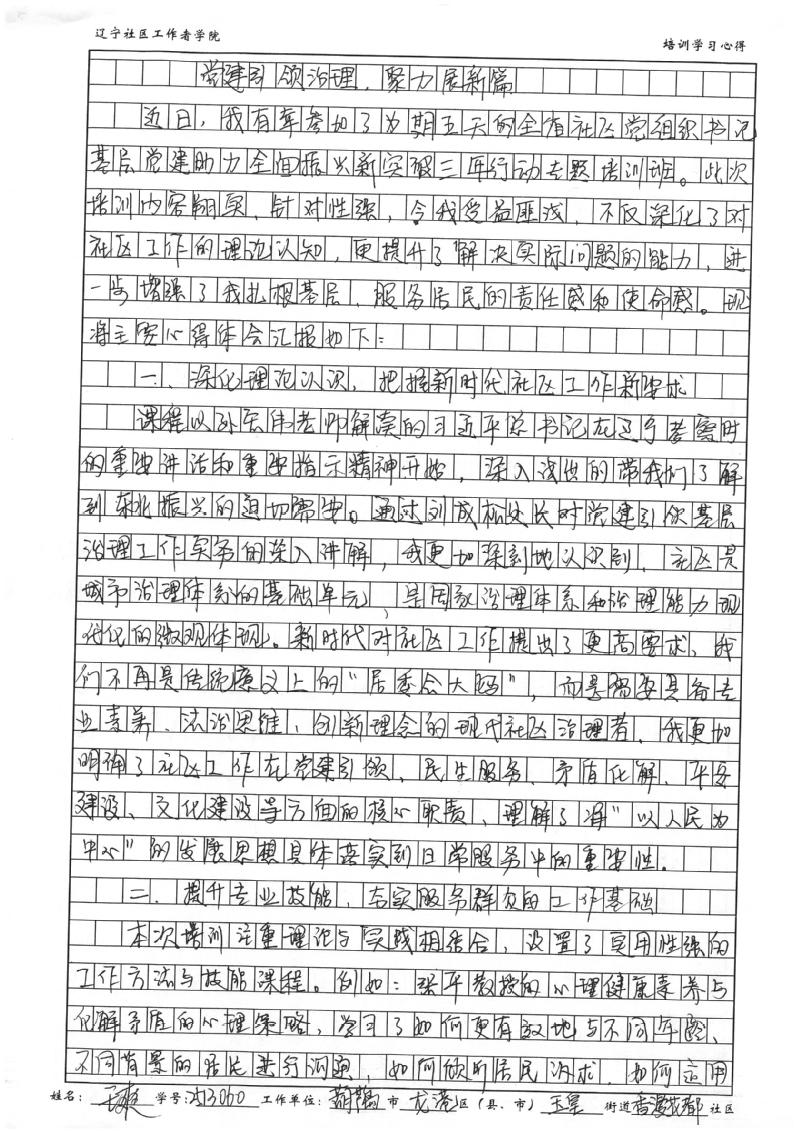 辽宁社区工作者学院
培训学习心得
党建引领治理，聚力展新篇
近日，我有幸参加了为期五天的全省社区党组织书记
基层党建助力全面振兴新突破三年行动专题培训班。此次
培训内容翔实、针对性强，令我受益匪浅，不仅深化了对
社区工作的理论认知，更提升了解决实际问题的能力，进
一步增强了我扎根基层、服务居民的责任感和使命感。现
将主要心得体会汇报如下：
一、深化理论认识，把握新时代社区工作新要求
课程以孙宏伟老师解读的习近平总书记在辽宁考察时
的重要讲话和重要指示精神开始，深入浅出的带我们了解
到东北振兴的迫切需要。通过刘成松处长对党建引领基层
治理工作实务的深入讲解，我更加深刻地认识到，社区是
城市治理体系的基础单元，是国家治理体系和治理能力现
代化的微观体现。新时代对社区工作提出了更高要求，我
们不再是传统意义上的“居委会大妈”，而是需要具备专
业素养、法治思维、创新理念的现代社区治理者，我更加
明确了社区工作在党建引领、民生服务、矛盾化解、平安
建设、文化建设等方面的核心职责，理解了将“以人民为
中心”的发展思想具体落实到日常服务中的重要性。
二、提升专业技能，夯实服务群众的工作基础
本次培训注重理论与实践相结合，设置了实用性强的
工作方法与技能课程。例如：梁平教授的心理健康素养与
化解矛盾的心理策略，学习了如何更有效地与不同年龄、
不同背景的居民进行沟通，如何倾听居民诉求，如何运用
姓名：王爽 学号：2513060 工作单位：葫芦岛市 龙港区（县、市） 玉皇 街道 香漫花都 社区